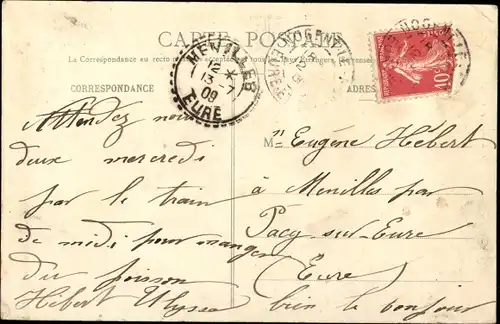 CARTE POSTALE
La Correspondance au recto
CORRESPONDANCE
MENILLES
12
13 -7
09
EURE
NOGENT
10
Attendez nous
deux mercredi
par le train
de midi pour manger
du poisson
Hébert Ulysse
M Eugène Hébert
à Menilles par
Pacy-sur-Eure
(Eure)
bien le bonjour